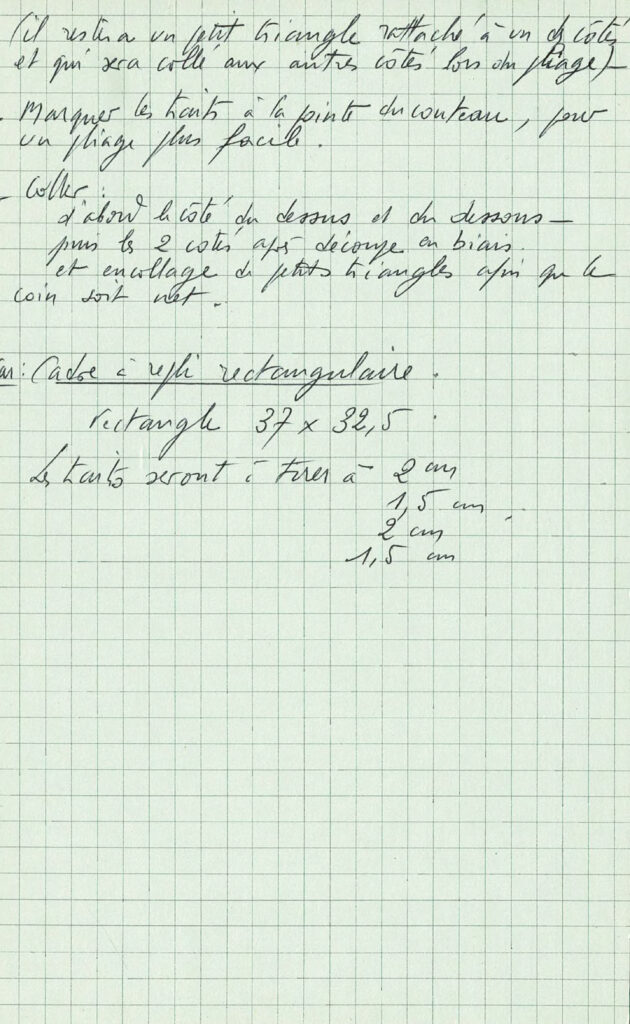 (il restera un petit triangle rattaché à un des côtés
et qui sera collé aux autres côtés lors du pliage) -
- Marquer les traits à la pointe du couteau, pour
un pliage plus facile.
- Coller :
d'abord le côté du dessus et du dessous -
puis les 2 côtés après découpe en biais.
et encollage de petits triangles afin que le
coin soit net.
Cadre à repli rectangulaire.
rectangle 37 x 32,5
Les traits seront à tirer à 2 cm
1,5 cm
2 cm
1,5 cm